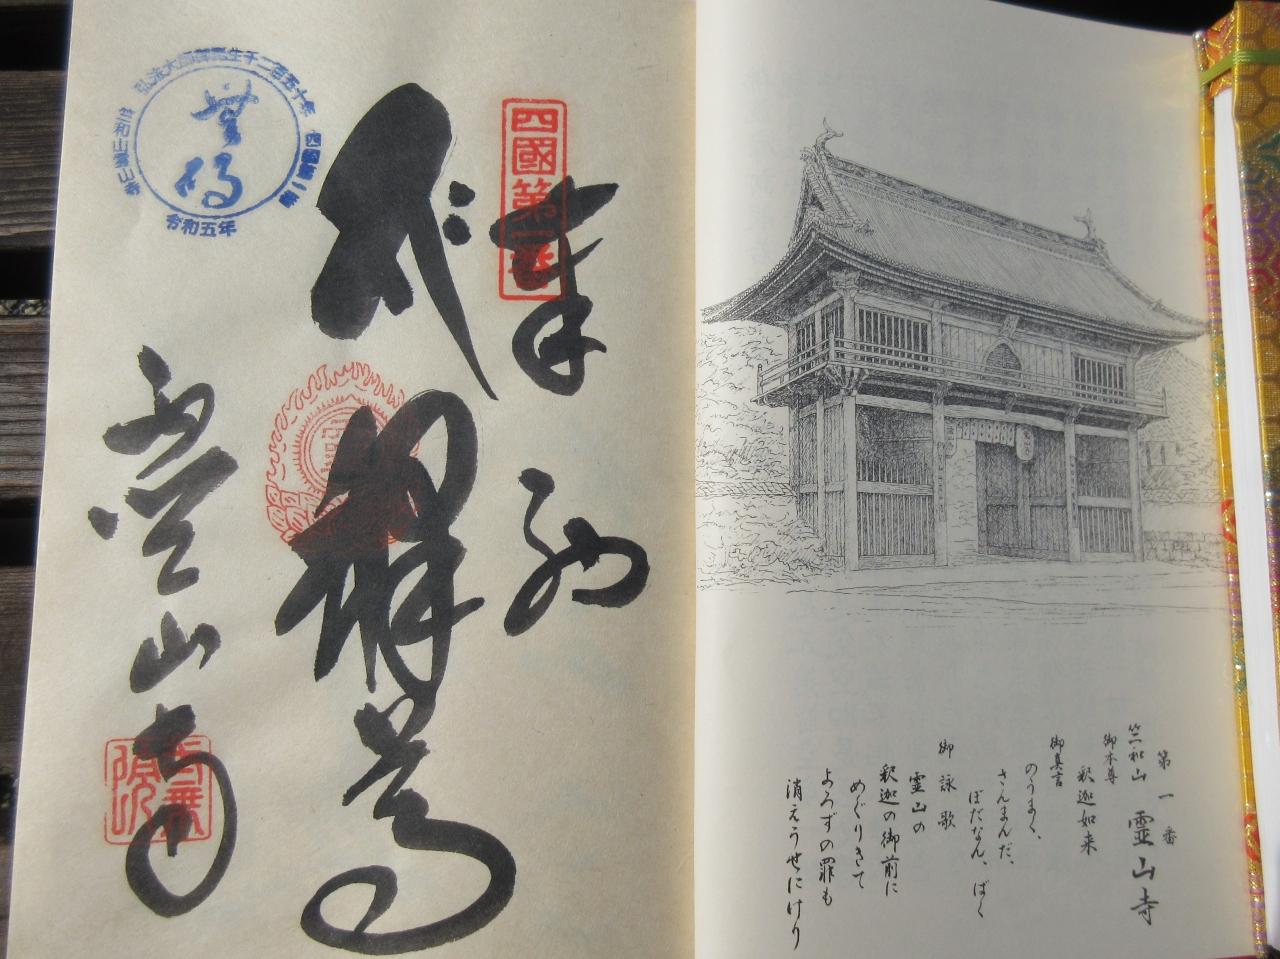 第一番
竺和山 霊山寺
御本尊
釈迦如来
御真言
のうまく、
さんまんだ、
ぼだなん、ばく
御詠歌
霊山の
釈迦の御前に
めぐりきて
よろずの罪も
消えうせにけり
四國第一番
奉納
釋尊
霊山寺
弘法大師御誕生千二百五十年
四国第一番
竺和山霊山寺
令和五年